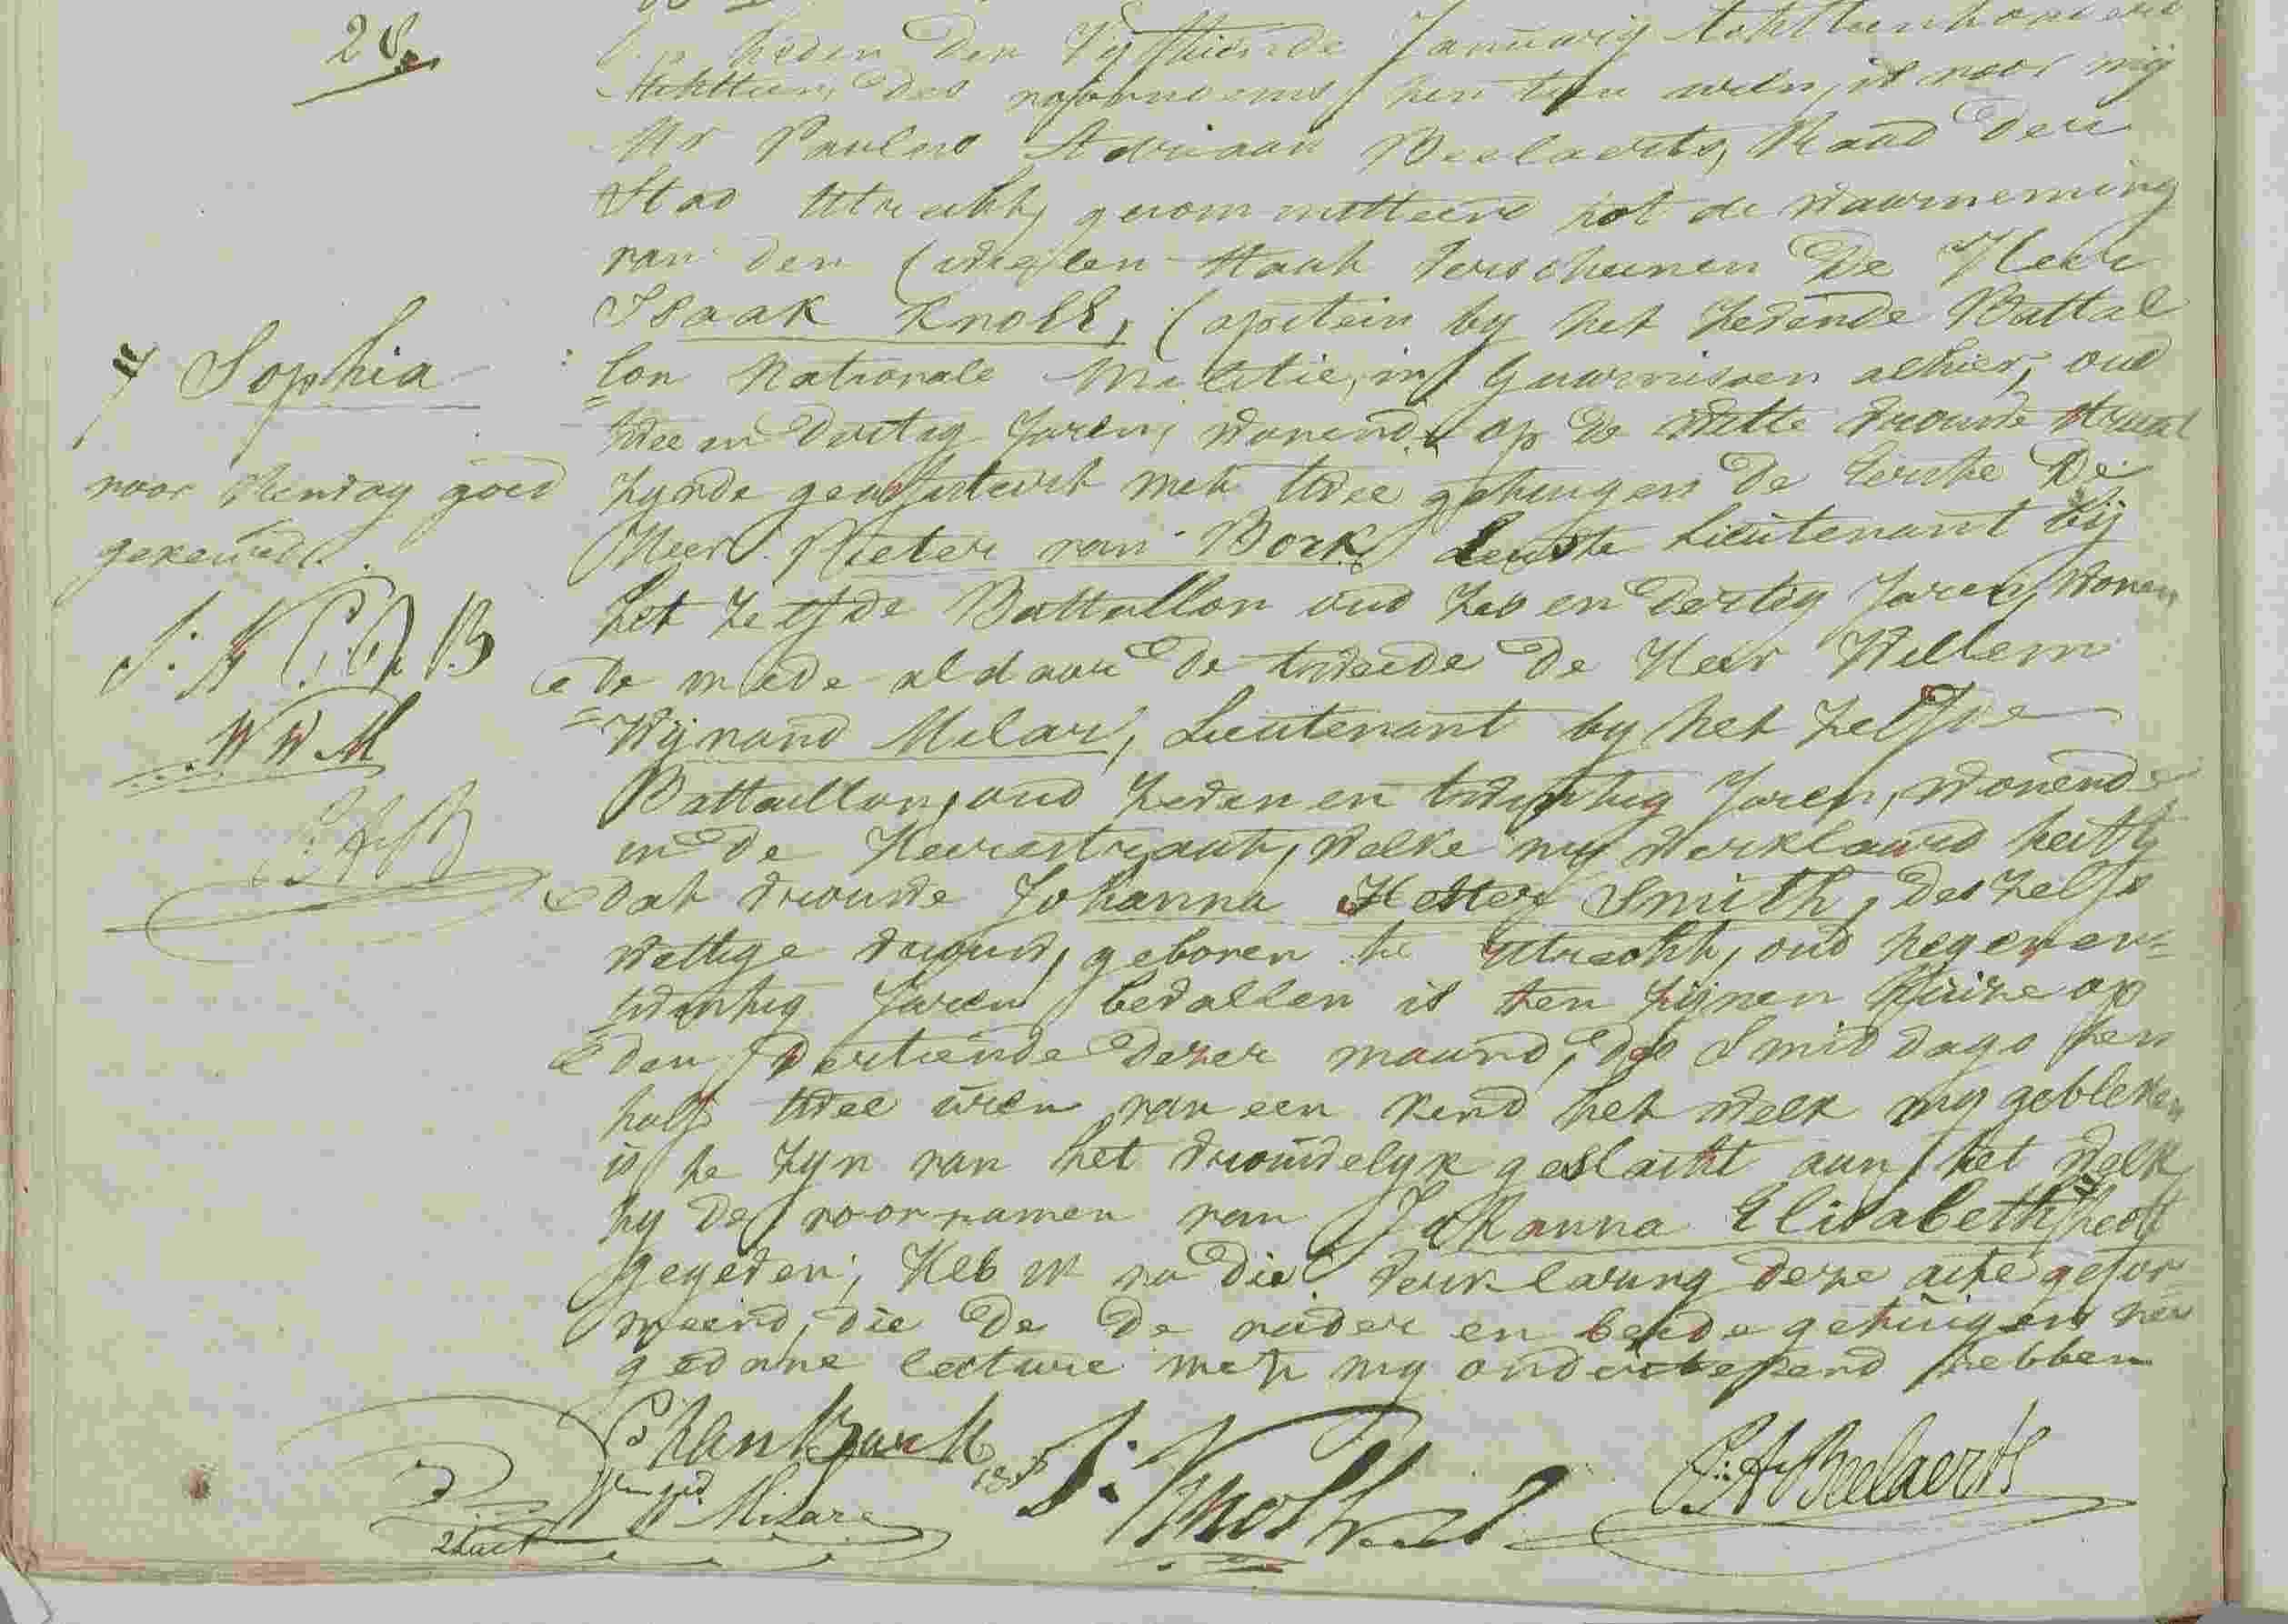 28
Op heden den Vyfthiende January Achttienhonderd
Achttien, des voornoens ten tien uren, is voor my
Mr Paulus Adriaan Beelaerts, Raad der
Stad Utrecht, gecommitteerd tot de waarneming
van den Civielen Staat verscheenen De Heer
Isaak Knoll, Capitein by het Zevende Battal
lon Nationale Militie, in Guarnisoen alhier, oud
twee en dertig Jaren, wonende op de Witte Vrouwe straat
zynde geadsisteert met twee getuigen de Eerste De
Heer Pieter van Bork, Eerste Lieutenant bij
het zelfde Battallon oud zes en dertig Jaren, wonen
de mede aldaar De tweede De Heer Willem
Wijnand Milar, Lieutenant by het zelfde
Battaillon, oud zeven en twintig Jaren, wonende
in de Heerestraat, welke my verklaard heeft,
dat vrouwe Johanna Hester Smith, deszelfs
wettige vrouw, geboren te Utrecht, oud negen en
twintig Jaren bevallen is ten zijnen Huize op
den dertiende dezer maand, des Smiddags ten
half twee uren van een kind het welk my gebleken
is te zyn van het vrouwelyk geslacht aan het welk
hy de voornamen van Johanna Elisabeth heeft
gegeven; Heb ik na die verklaring deze acte gefor
meerd, die de de vader en beide getuigen na
gedane lecture met my onderteekend hebben
Sophia
voor Rendoy goed
gekeurd.
I: K P. V B
W W M
P: A: B
P van Bork
W. W. Milar
2 Luit
I: Knoll
P: A: Beelaerts